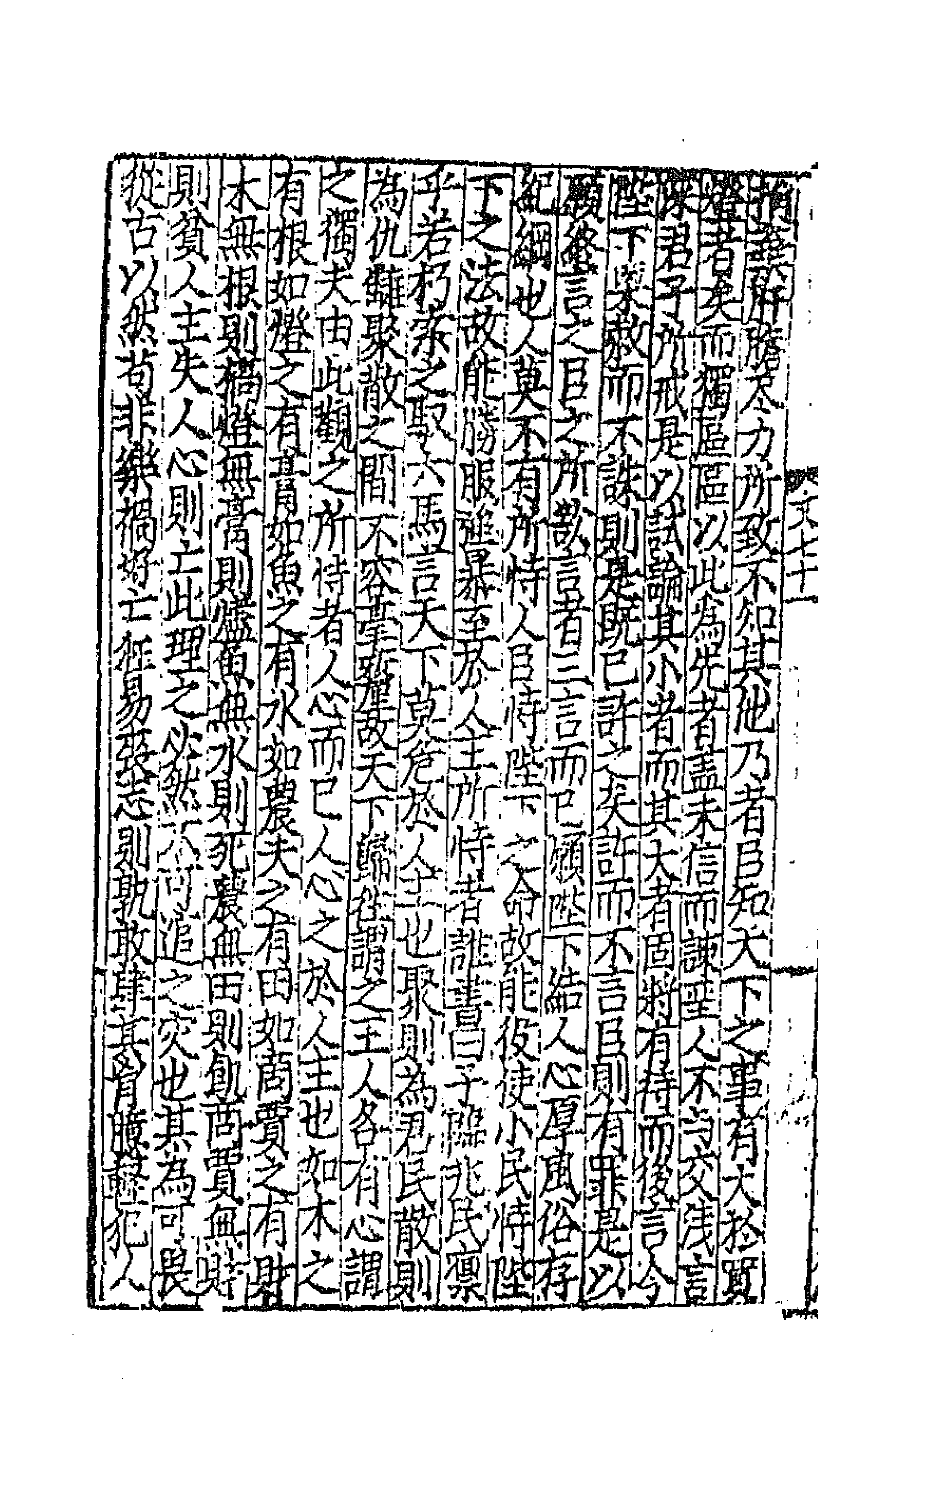 捐軀肝膽盡力所致不知其他乃者臣知天下之事有大於買
燈者矣而獨區區以此為先者盖未信而諫聖人不与交淺言
深君子所戒是以試論其小者而其大者固將有待而後言今
陛下果赦而不誅則是既已許之矣許而不言臣則有罪是以
願終言之臣之所欲言者三言而已願陛下結人心厚風俗存
紀綱也人莫不有所恃人臣恃陛下之命故能役使小民恃陛
下之法故能勝服強暴至於人主所恃者誰書曰予臨兆民凛
乎若朽索之馭六馬言天下莫危於人主也聚則為君民散則
為仇讎聚散之間不容毫釐故天下歸徃謂之王人各有心謂
之獨夫由此觀之人主之所恃者人心而已人心之於人主也如木之
有根如燈之有膏如魚之有水如農夫之有田如商賈之有財
木無根則槁燈無膏則滅魚無水則死農無田則飢商賈無財
則貧人主失人心則亡此理之必然不可逭之灾也其為可畏
從古以然苟非樂禍好亡狂易喪志則孰敢肆其胷臆輕犯人
文七十一